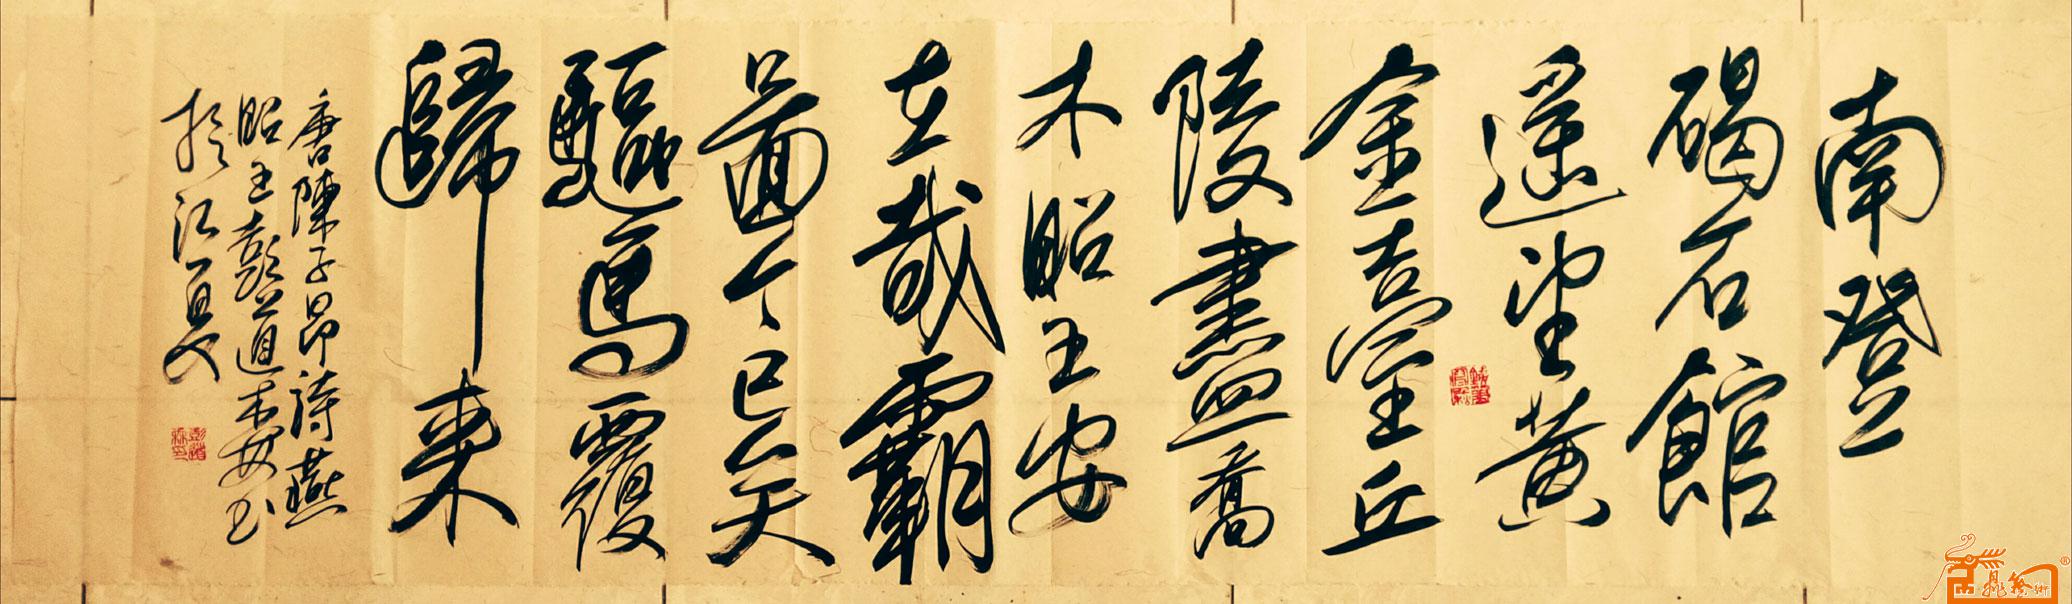 南登
碣石館
遥望黄
金臺丘
陵盡喬
木昭王安
在哉霸
圖今已矣
驅馬覆
歸来
唐陳子昂詩燕
昭王彭道森书
於江夏